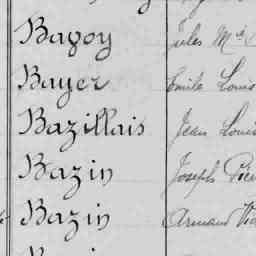 Bagoy Jules M
Bayer Emile Louis
Bazillais Jean Louis
Bazin Joseph
Bazin Armand